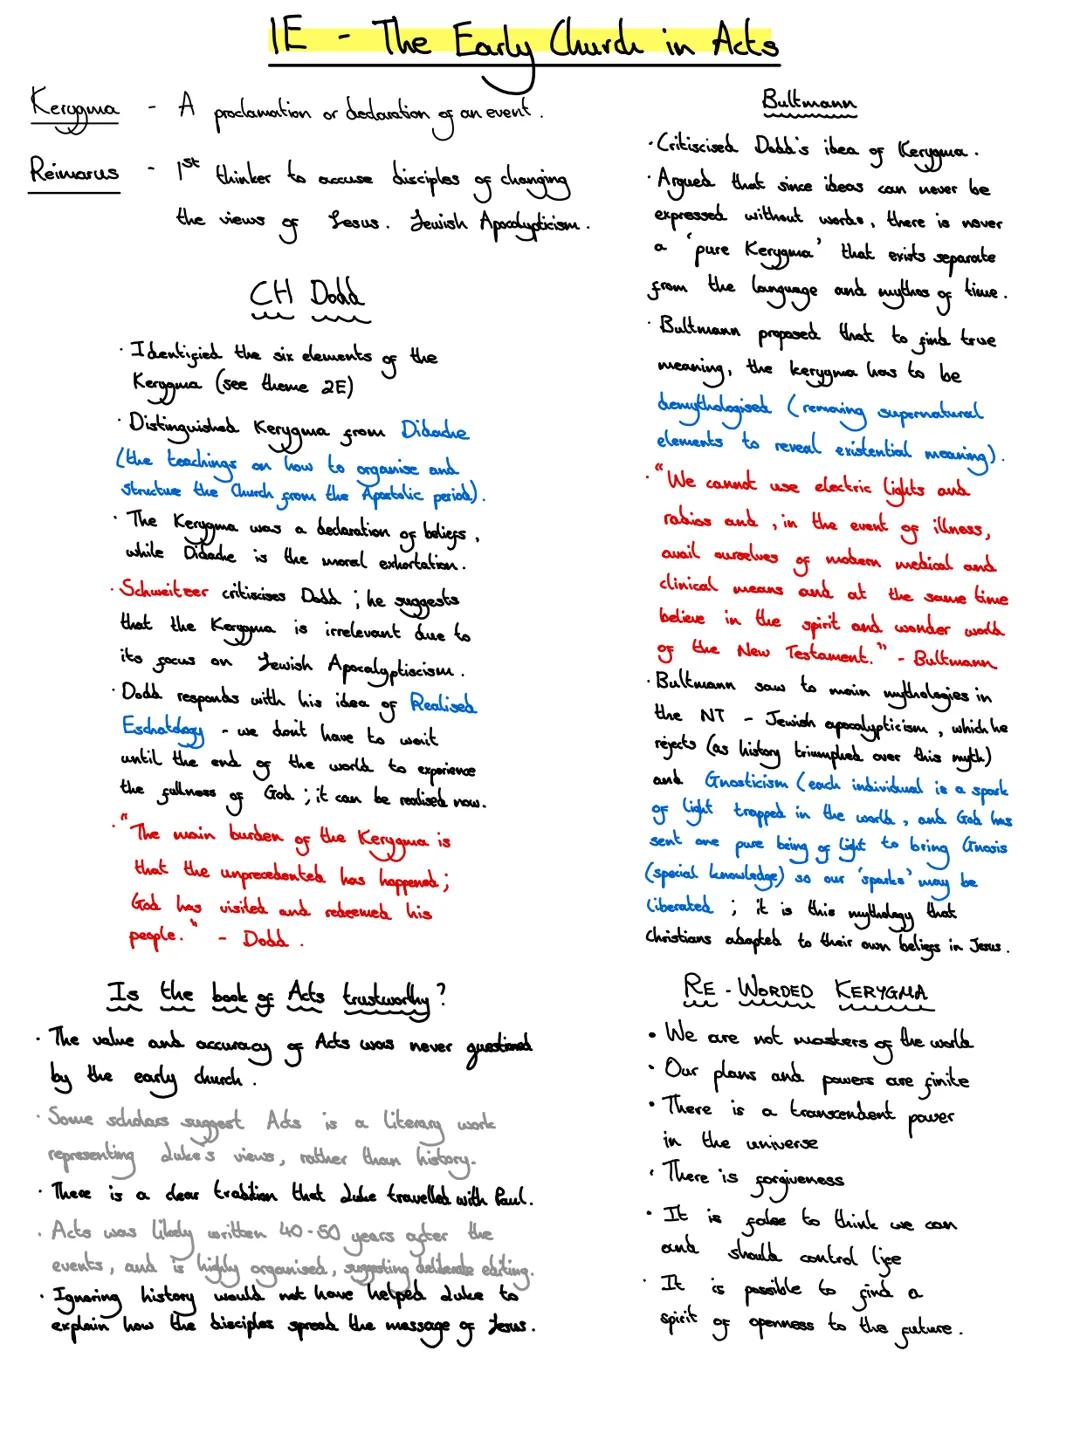 1E - The Early Church in Acts
Kerygma - A proclamation or declaration of an event.
Reimarus - 1st thinker to accuse disciples of changing
the views of Jesus. Jewish Apocalypticism.
CH Dodd
· Identified the six elements of the
Kerygma (see theme 2E)
· Distinguished Kerygma from Didache
(the teachings on how to organise and
structure the Church from the Apostolic period).
· The Kerygma was a declaration of beliefs,
while Didache is the moral exhortation.
· Schweitzer criticises Dodd; he suggests
that the Kerygma is irrelevant due to
its focus on Jewish Apocalyptiscism.
· Dodd responds with his idea of Realised
Eschatology - we don't have to wait
until the end of the world to experience
the fullness of God; it can be realised now.
· "The main burden of the Kerygma is
that the unprecedented has happened;
God has visited and redeemed his
people." - Dodd.
Is the book of Acts trustworthy?
· The value and accuracy of Acts was never questioned
by the early church.
· Some scholars suggest Acts is a literary work
representing Luke's views, rather than history.
· There is a clear tradition that Luke travelled with Paul.
· Acts was likely written 40-50 years after the
events, and is highly organised, suggesting deliberate editing.
· Ignoring history would not have helped Luke to
explain how the disciples spread the message of Jesus.
Bultmann
· Critiscised Dodd's idea of Kerygma.
· Argued that since ideas can never be
expressed without words, there is never
a 'pure Kerygma' that exists separate
from the language and mythos of time.
· Bultmann proposed that to find true
meaning, the kerygma has to be
demythologised (removing supernatural
elements to reveal existential meaning).
· "We cannot use electric lights and
radios and, in the event of illness,
avail ourselves of modern medical and
clinical means and at the same time
believe in the spirit and wonder world
of the New Testament." - Bultmann
· Bultmann saw to main mythologies in
the NT - Jewish apocalypticism, which he
rejects (as history triumphed over this myth)
and Gnosticism (each individual is a spark
of light trapped in the world, and God has
sent one pure being of light to bring Gnosis
(special knowledge) so our 'sparks' may be
liberated; it is this mythology that
Christians adapted to their own beliefs in Jesus.
RE-WORDED KERYGMA
· We are not maskers of the world
· Our plans and powers are finite
· There is a transcendent power
in the universe
· There is forgiveness
· It is false to think we can
and should control life
· It is possible to find a
spirit of openness to the future.